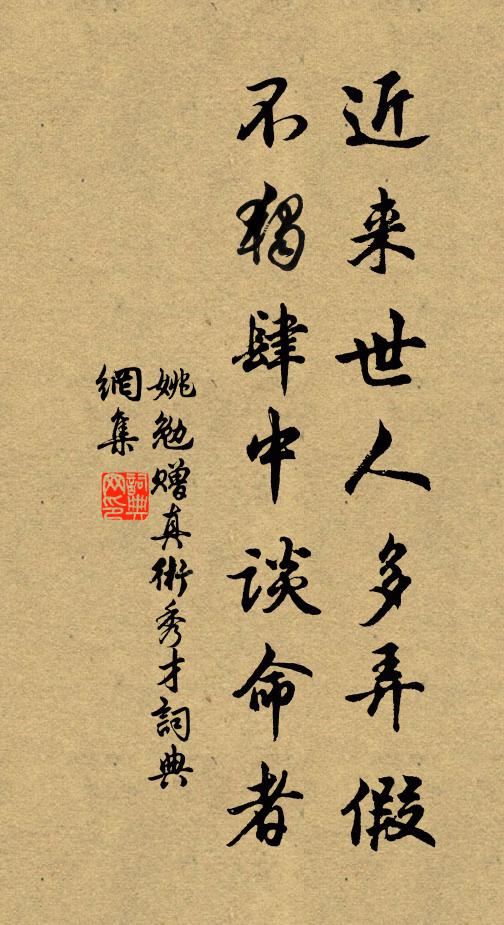 近来世人多弄假
不独肆中谈命者
姚勉赠真術秀才詞典
網集
詞典
网印